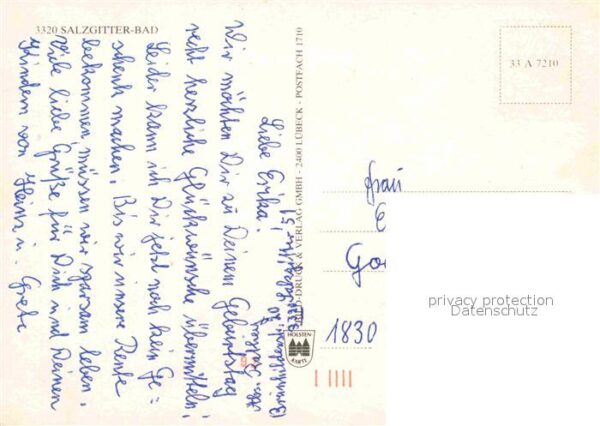 3320 SALZGITTER-BAD
Liebe Erika!
Wir möchten Dir zu Deinem Geburtstag
recht herzliche Glückwünsche übermitteln!
Leider kann ich Dir jetzt noch kein Ge=
schenk machen. Bis wir unsere Rente
bekommen, müssen wir sparsam leben.
Viele liebe Grüße für Dich und Deinen
Kindern von Heinz u. Grete
3320 Salzgitter 51
BILD-DRUCK & VERLAG GMBH - 2400 LÜBECK - POSTFACH 1710
HOLSTEN-
KARTE
33 A 7210
Frau
E
Go
1830
privacy protection
Datenschutz